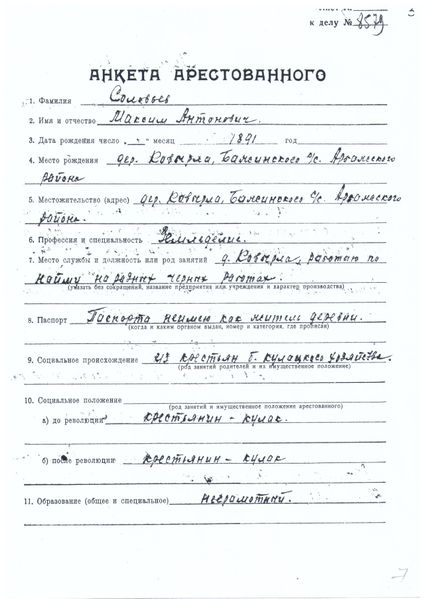 к делу № 8579
АНКЕТА АРЕСТОВАННОГО
1. Фамилия Соловьев
2. Имя и отчество Максим Антонович.
3. Дата рождения число „ " месяц 1891 год
4. Место рождения дер. Ковырла, с/с. Арбажского
района
5. Местожительство (адрес) дер. Ковырла, с/с. Арбажского
района.
6. Профессия и специальность Земледелие.
7. Место службы и должность или род занятий д. Ковырла, работаю по
найму на разных черных работах.
(указать без сокращений, название предприятия или учреждения и характер производства)
8. Паспорт Паспорта неимею как житель деревни.
(когда и каким органом выдан, номер и категория, где прописан)
9. Социальное происхождение из крестьян б. кулацкого хозяйства.
(род занятий родителей и их имущественное положение)
10. Социальное положение
(род занятий и имущественное положение арестованного)
а) до революции крестьянин - кулак.
б) после революции крестьянин - кулак
11. Образование (общее и специальное) неграмотный.